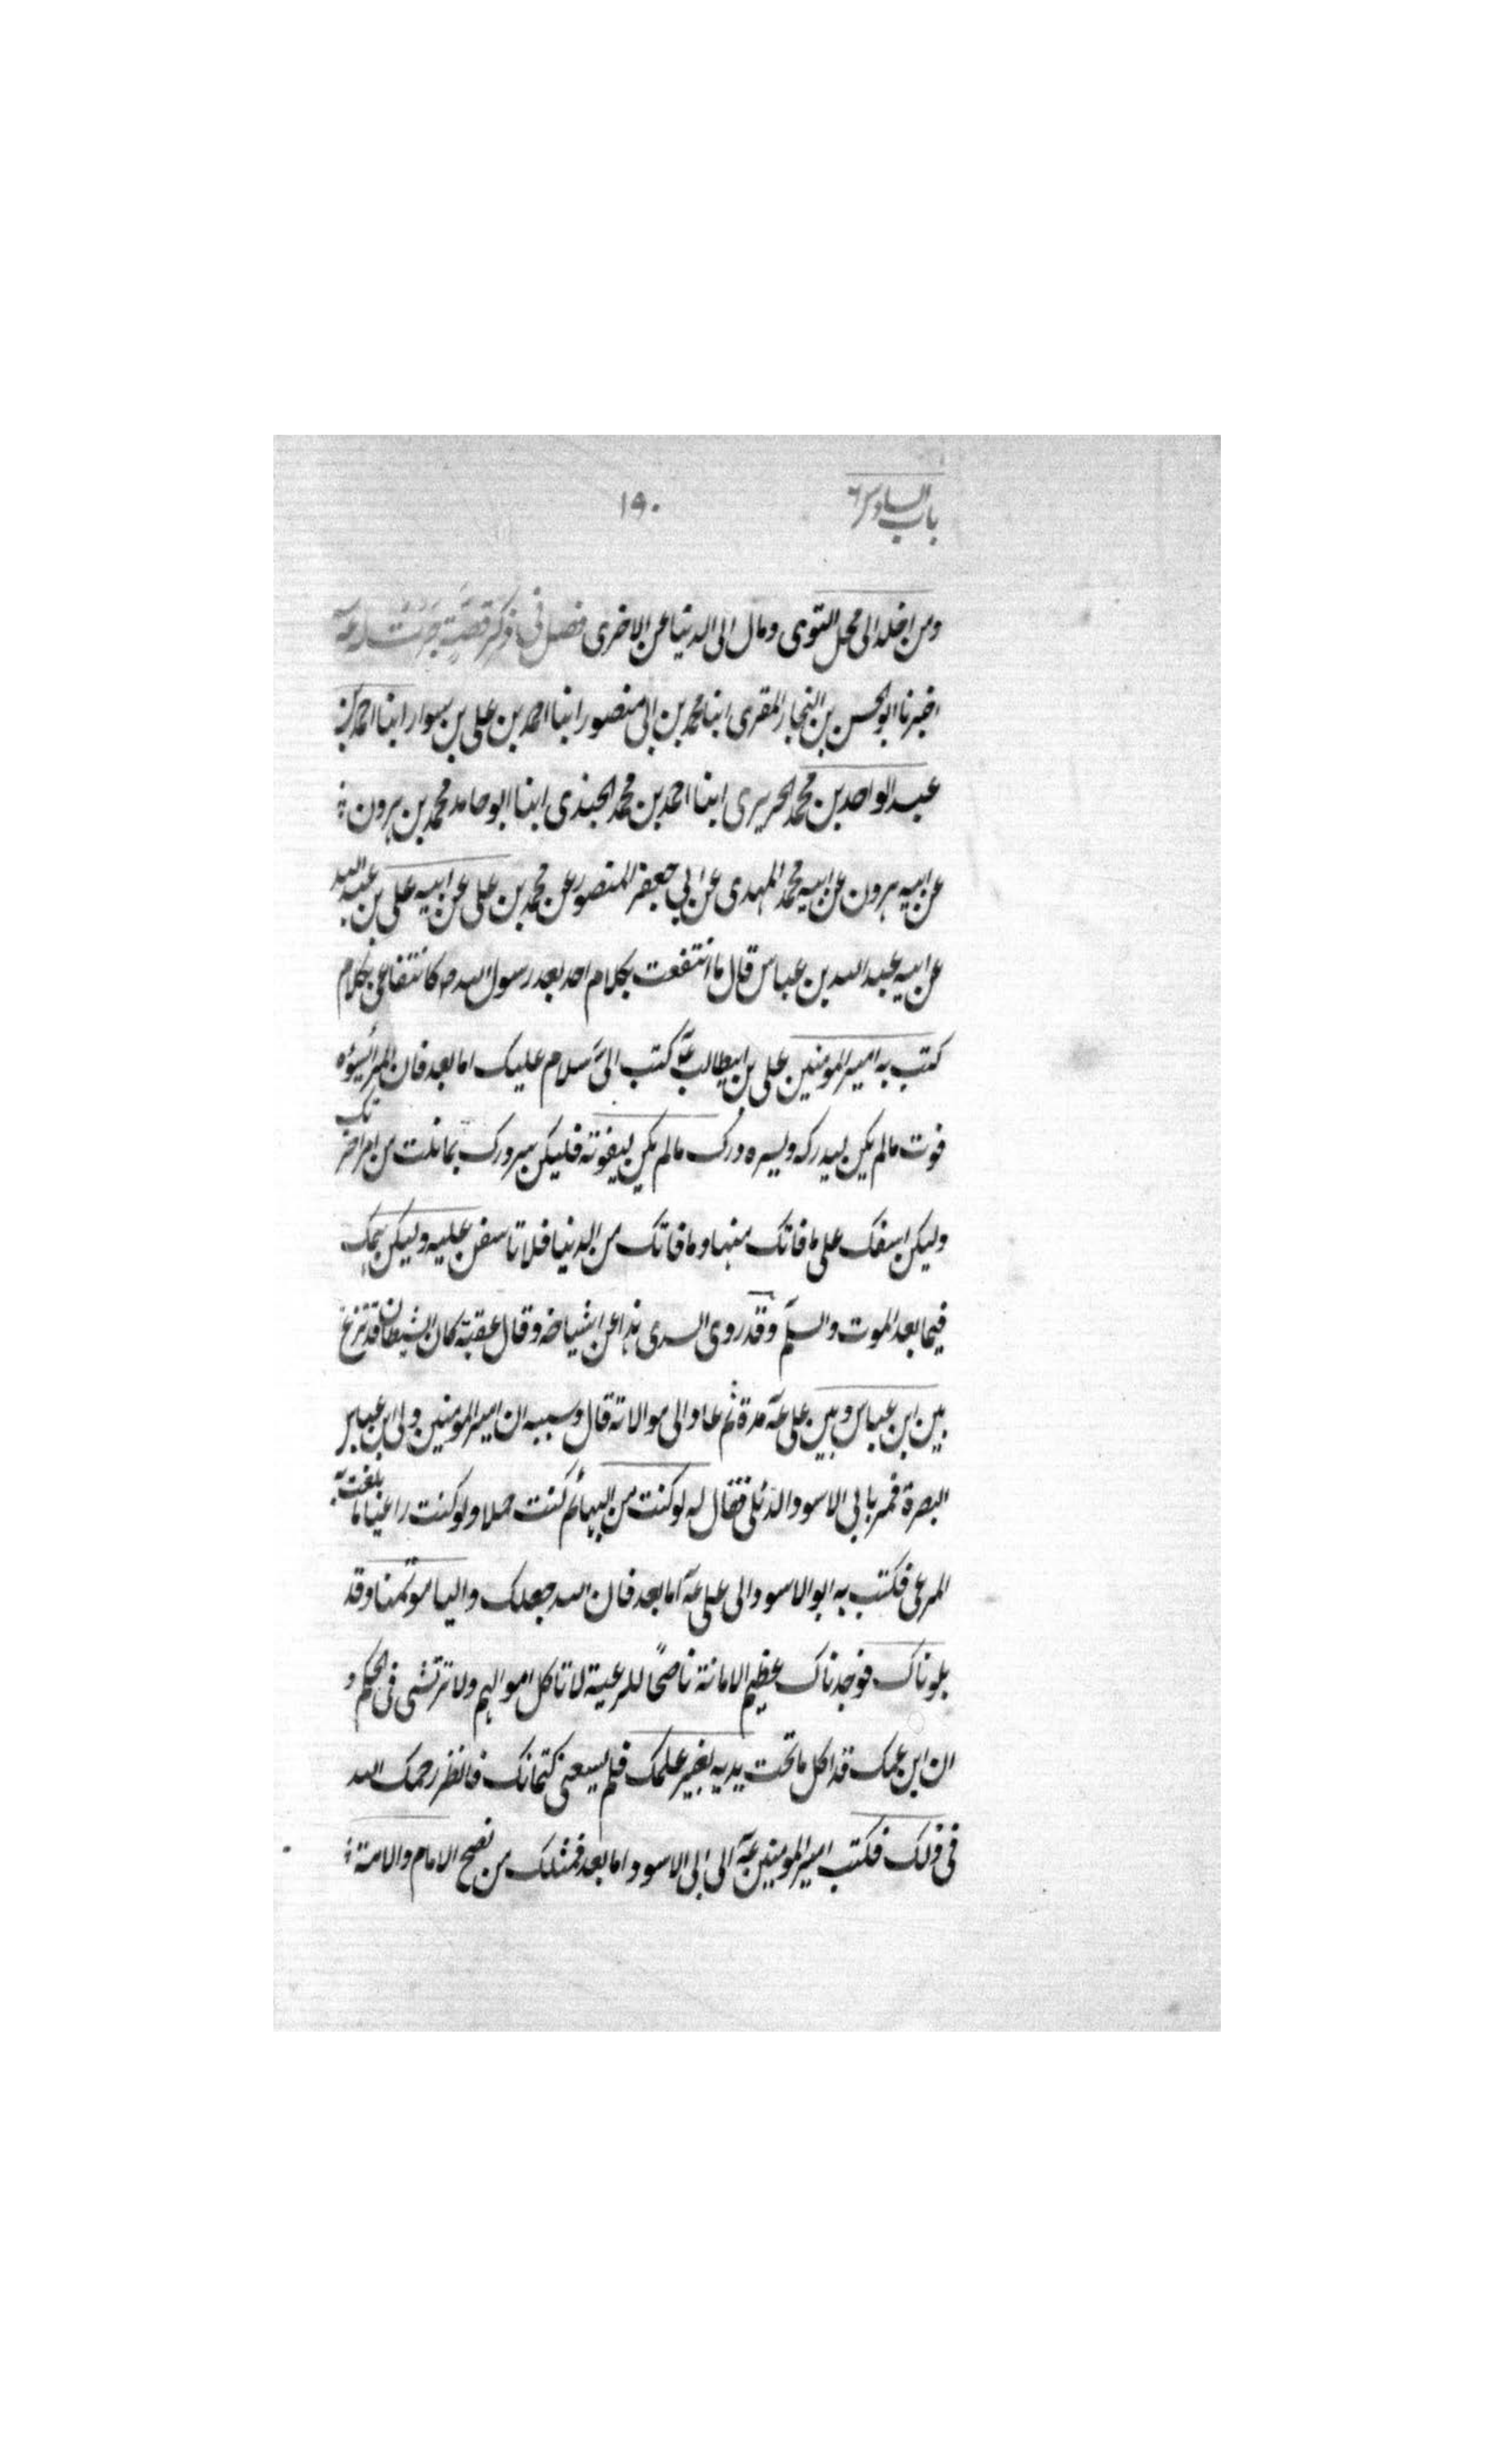 باب السادس ٦
١٩٠
ومن اخلد الى محل التوى ومال الى الدنيا عن الاخرى فصل فى ذكر قصّة جرت له عـہ
اخبرنا ابو الحسن بن النجار المقرى ابنا محمد بن ابى منصور ابنا احمد بن على بن سوار ابنا احمد بن
عبد الواحد بن محمد الحريرى ابنا احمد بن محمد الجندى ابنا ابو حامد محمد بن هرون
عن ابيه هرون عن ابيه محمد المهدى عن ابى جعفر المنصور عن محمد بن على عن ابيه على بن عبد الله
عن ابيه عبد الله بن عباس قال ما انتفعت بكلام احد بعد رسول الله ص كانتفاعى بكلام
كتب به امير المومنين على بن ابيطالب عـہ كتب الىّ سلام عليك اما بعد فان المرء يسؤه
فوت مالم يكن ليدركه ويسره درك مالم يكن ليفوته فليكن سرورك بما نلت من امر اخرتك
وليكن اسفك على ما فاتك منها وما فاتك من الدنيا فلا تاسفن عليه وليكن همك
فيما بعد الموت والسلم وقد روى السدى هذا عن اشياخه وقال عقبة كان الشيطان قد نزغ
بين ابن عباس وبين على عـہ مدة ثم عاد الى موالاته قال وسببه ان امير المومنين ولى ابن عباس
البصرة فمر بابى الاسود الدئلى فقال له لو كنت من البهائم كنت جملا ولو كنت راعيا ما بلغت
المرعى فكتب به ابو الاسود الى على عـہ اما بعد فان الله جعلك واليا موتمنا وقد
بلوناك فوجدناك عظيم الامانة ناصحًا للرعية لا تاكل اموالهم ولا ترتشى فى الحكم و
ان ابن عمك قد اكل ما تحت يديه بغير علمك فلم يسعنى كتمانك فانظر رحمك الله
فى ذلك فكتب امير المومنين عـہ الى ابى الاسود اما بعد فمثلك من نصح الامام والامة